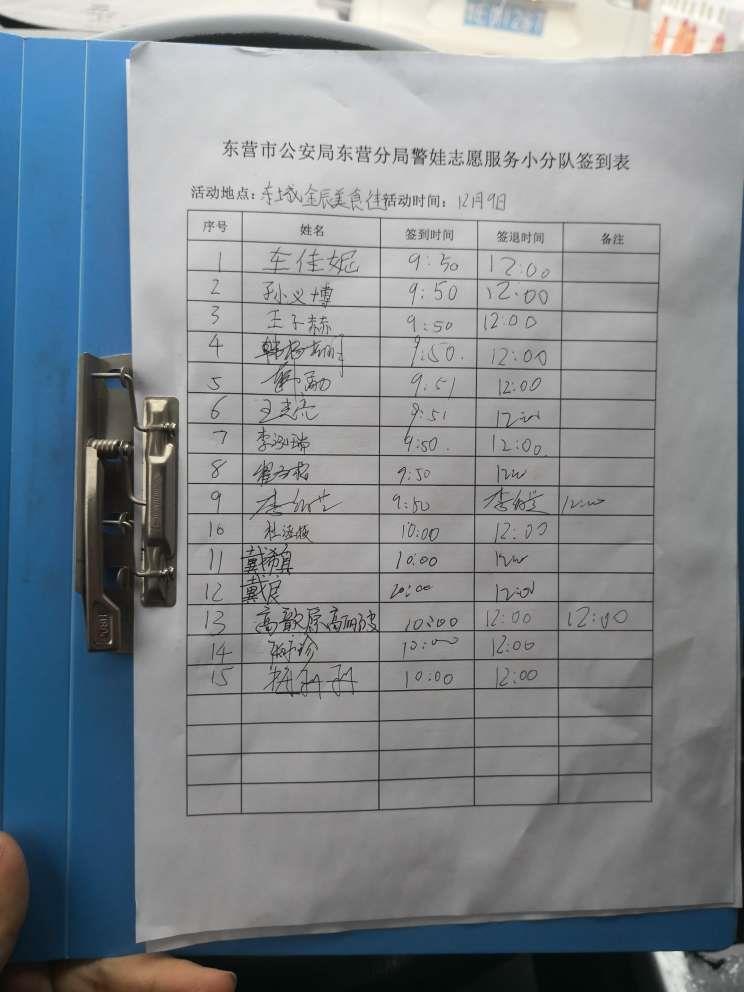 东营市公安局东营分局警娃志愿服务小分队签到表
活动地点：东城金辰美食街 活动时间：12月9日
序号 姓名 签到时间 签退时间 备注
1 车佳妮 9:50 12:00
2 孙义博 9:50 12:00
3 王子赫 9:50 12:00
4 9:50. 12:00
5 9:51 12:00
6 王志亮 9:51 12:00
7 李泓瑞 9:50. 12:00.
8 9:50 12:00
9 李 9:50 李 12:00
10 杜 10:00 12:00
11 戴希真 10:00 12:00
12 戴辰 10:00 12:00
13 高歆原 高丽波 10:00 12:00 12:00
14 10:00 12:00
15 10:00 12:00